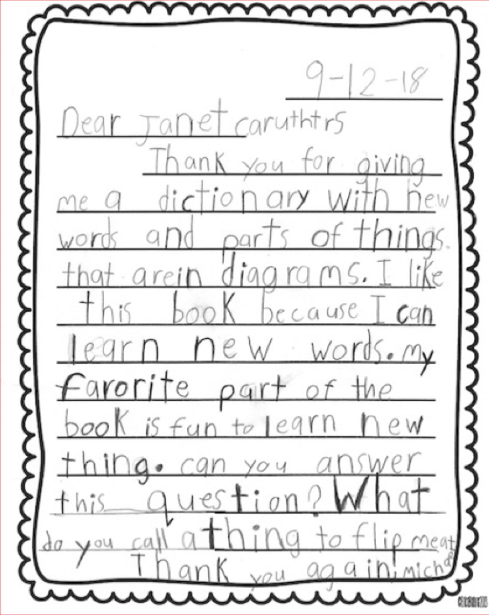 9-12-18
Dear Janet caruthtrs
Thank you for giving
me a dictionary with new
words and parts of things.
that arein diagrams. I like
this book because I can
learn new words. my
farorite part of the
book is fun to learn new
thing. can you answer
this question? What
do you call a thing to flip meat
Thank you again! micha